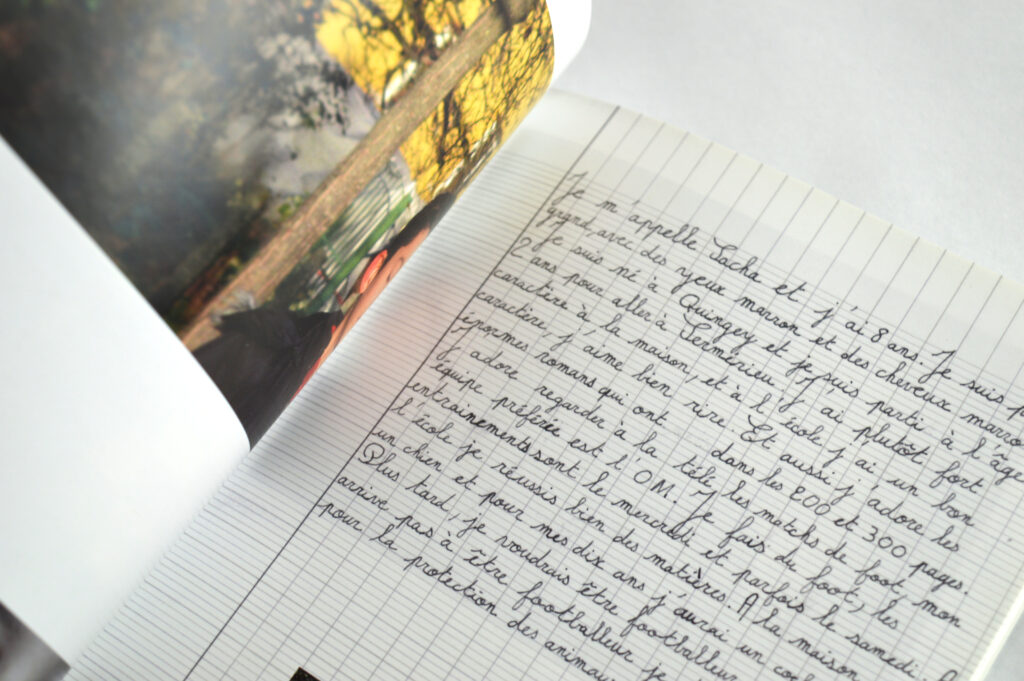 Je m'appelle Sacha et j'ai 8 ans. Je suis
grand, avec des yeux marron et des cheveux marron
Je suis né à Quingey et je suis parti à l'âge
2 ans pour aller à Sermérieu. J'ai plutôt fort
caractère à la maison, et à l'école j'ai un bon
caractère, j'aime bien rire. Et aussi j'adore les
énormes romans qui ont dans les 200 et 300 pages.
J'adore regarder à la télé les matchs de foot, mon
équipe préférée est l'O.M. Je fais du foot, les
entraînements sont le mercredi et parfois le samedi. A
l'école je réussis bien des matières. A la maison
un chien et pour mes dix ans j'aurai un
Plus tard, je voudrais être footballeur
arrive pas à être footballeur je
pour la protection des animaux